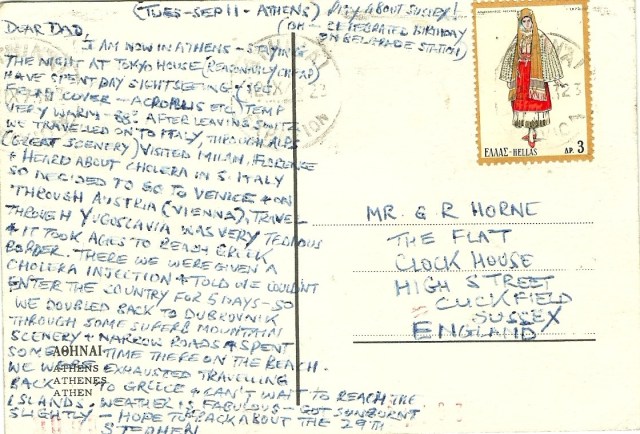 (TUES - SEP 11 - ATHENS)
PITY ABOUT SUSSEX!
(OH - CELEBRATED BIRTHDAY
ON BELGRADE STATION)
DEAR DAD,
I AM NOW IN ATHENS - STAYING
THE NIGHT AT TOKYO HOUSE (REASONABLY CHEAP)
HAVE SPENT DAY SIGHTSEEING + (SEE
COVER - ACROPOLIS ETC) TEMP
VERY WARM - 88° AFTER LEAVING SWITZ
WE TRAVELLED ON TO ITALY, THROUGH ALPS
(GREAT SCENERY) VISITED MILAN, FLORENCE
+ HEARD ABOUT CHOLERA IN S. ITALY
SO DECIDED TO GO TO VENICE + ON
THROUGH AUSTRIA (VIENNA), TRAVEL
THROUGH YUGOSLAVIA WAS VERY TEDIOUS
+ IT TOOK AGES TO REACH GREEK
BORDER. THERE WE WERE GIVEN A
CHOLERA INJECTION + TOLD WE COULDN'T
ENTER THE COUNTRY FOR 5 DAYS - SO
WE DOUBLED BACK TO DUBROVNIK
THROUGH SOME SUPERB MOUNTAIN
SCENERY + NARROW ROADS + SPENT
SOME TIME THERE ON THE BEACH.
WE WERE EXHAUSTED TRAVELLING
BACK TO GREECE + CAN'T WAIT TO REACH THE
ISLANDS. WEATHER IS FABULOUS - GOT SUNBURNT
SLIGHTLY - HOPE TO BE BACK ABOUT THE 29TH
STEPHEN
ΑΘΗΝΑΙ
ATHENS
ATHENES
ATHEN
1973
ΕΛΛΑΣ-HELLAS
ΔΡ. 3
MR. G R HORNE
THE FLAT
CLOCK HOUSE
HIGH STREET
CUCKFIELD
SUSSEX
ENGLAND